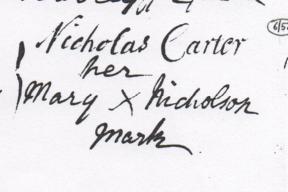 Nicholas Carter
her
Mary X Nicholson
mark